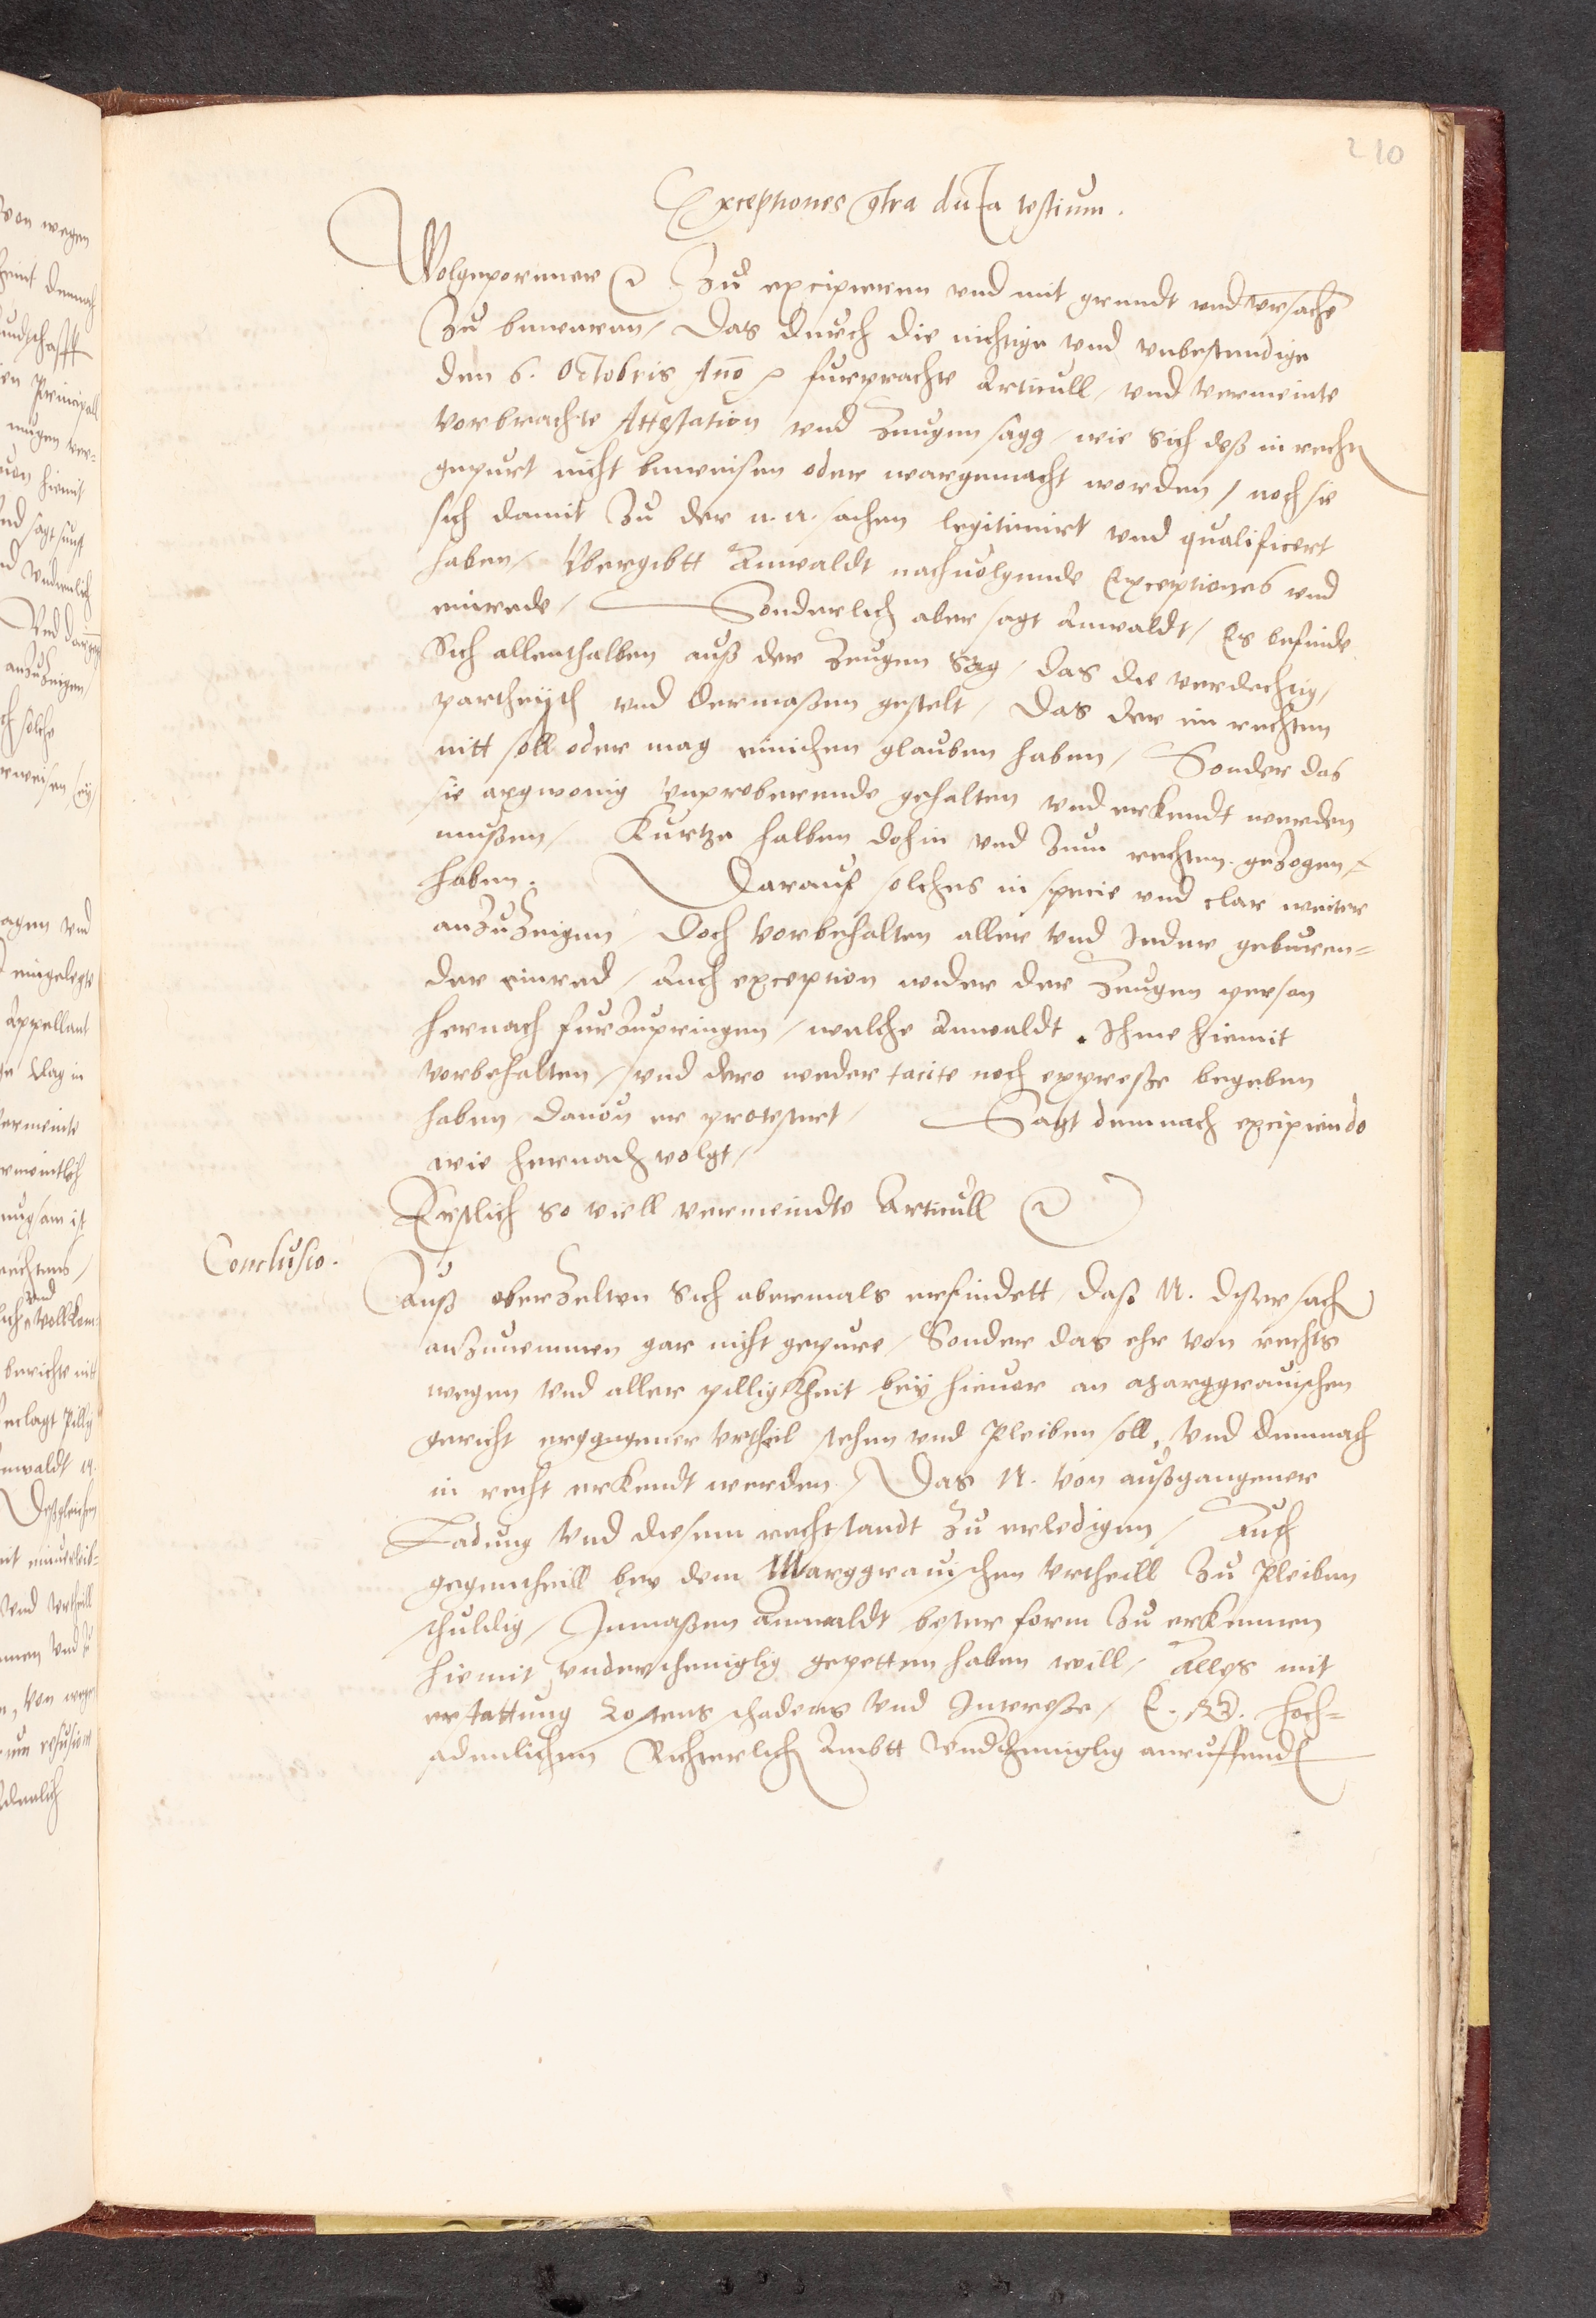 210
Exceptiones contra dicta testium.
Wolgeporner etc Zu excipieren vnd mit grundt vnd vrsachen
Zu beweren / Das durch die nichtige vnd vnbestendige
den 6. Octobris Anno etc furprachte Articull / vnd vermeinte
vorbrachte Attestation vnd Zeugen sagg / wie sich deß in recht
gepurt nicht beweisen oder wargemacht worden / noch sie
sich damit Zu der n. n. sachen legitimirt vnd qualificert
haben / Vbergibtt Anwaldt nachuolgende Exceptiones vnd
einrede / Sonderlich aber sagt Anwaldt / Es befinde
Sich allenthalben auß der Zeugen Sag / das die verdechtig /
partheysch vnd dermaßen gestelt / Das der im rechten
nitt soll oder mag einichen glauben haben / Sonder das
sie argwonig vnproberende gehalten vnd erkendt werden
mußen / Kurtze halben dohin vnd Zum rechten gezogen
haben. Darauf solches in specie vnd clar weiter
anzuZeigen / Doch vorbehalten aller vnd Jeder geburen=
der einred / Auch exception wider der Zeugen person
hernach furzupringen / welche Anwaldt Ihme hiemit
vorbehalten / vnd dero weder tacite noch expresse begeben
haben dauon er protestirt / Sagt demnach excipiendo
wie hernach volgt /
Erstlich so viell vermeindte Articull etc
Conclusio.
Auß oberZelten Sich abermals erfindett / daß N. diser sach
anzunemmen gar nicht gepure / Sonder das ehr von rechts
wegen vnd aller pilligkheit bey hieuor an Marggrauischen
gericht erggangener vrtheil stehen vnd Pleiben soll, vnd demnach
in recht erkendt werden / Das N. von außgangener
Ladung vnd diesem rechtstandt Zu erledigen / Auch
gegentheill bey dem Marggrauischen vrtheill Zu Pleiben
schuldig / Inmaßen Anwaldt bester form Zu erkennen
hiemit vndertheniglig gepetten haben will / Alles mit
erstattung Costens schadens vnd Interesse / E. Hoch=
adenlichen Richterlich Ambtt vnderthenniglig anruffend